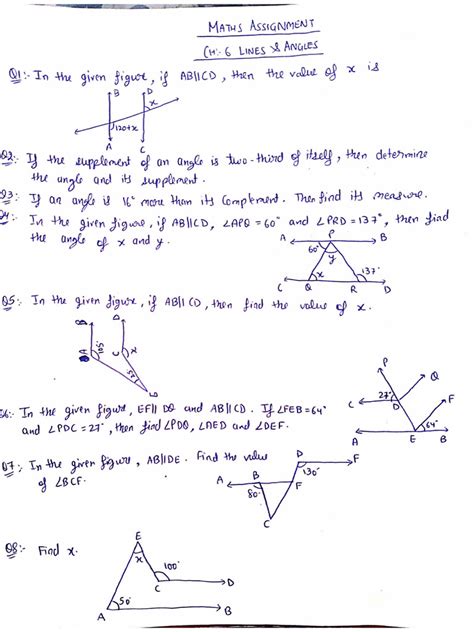 MATHS ASSIGNMENT
CH:- 6 LINES & ANGLES
Q1:- In the given figure, if AB||CD, then the value of x is
B
D
x
120+x
A
C
Q2:- If the supplement of an angle is two-third of itself, then determine
the angle and its supplement.
Q3:- If an angle is 16° more than its complement. Then find its measure.
Q4:- In the given figure, if AB||CD, ∠APQ = 60° and ∠PRD = 137°, then find
the angle of x and y.
A
P
B
60°
y
x
137°
C
Q
R
D
Q5:- In the given figure, if AB||CD, then find the value of x.
B
D
A
105°
C
x
Q6:- In the given figure, EF||DQ and AB||CD. If ∠FEB = 64°
and ∠PDC = 27°, then find ∠PDQ, ∠AED and ∠DEF.
P
Q
27°
C
D
F
64°
A
E
B
Q7:- In the given figure, AB||DE. Find the value
of ∠BCF.
D
F
130°
A
B
F
80°
C
Q8:- Find x.
E
x
100°
C
D
50°
A
B